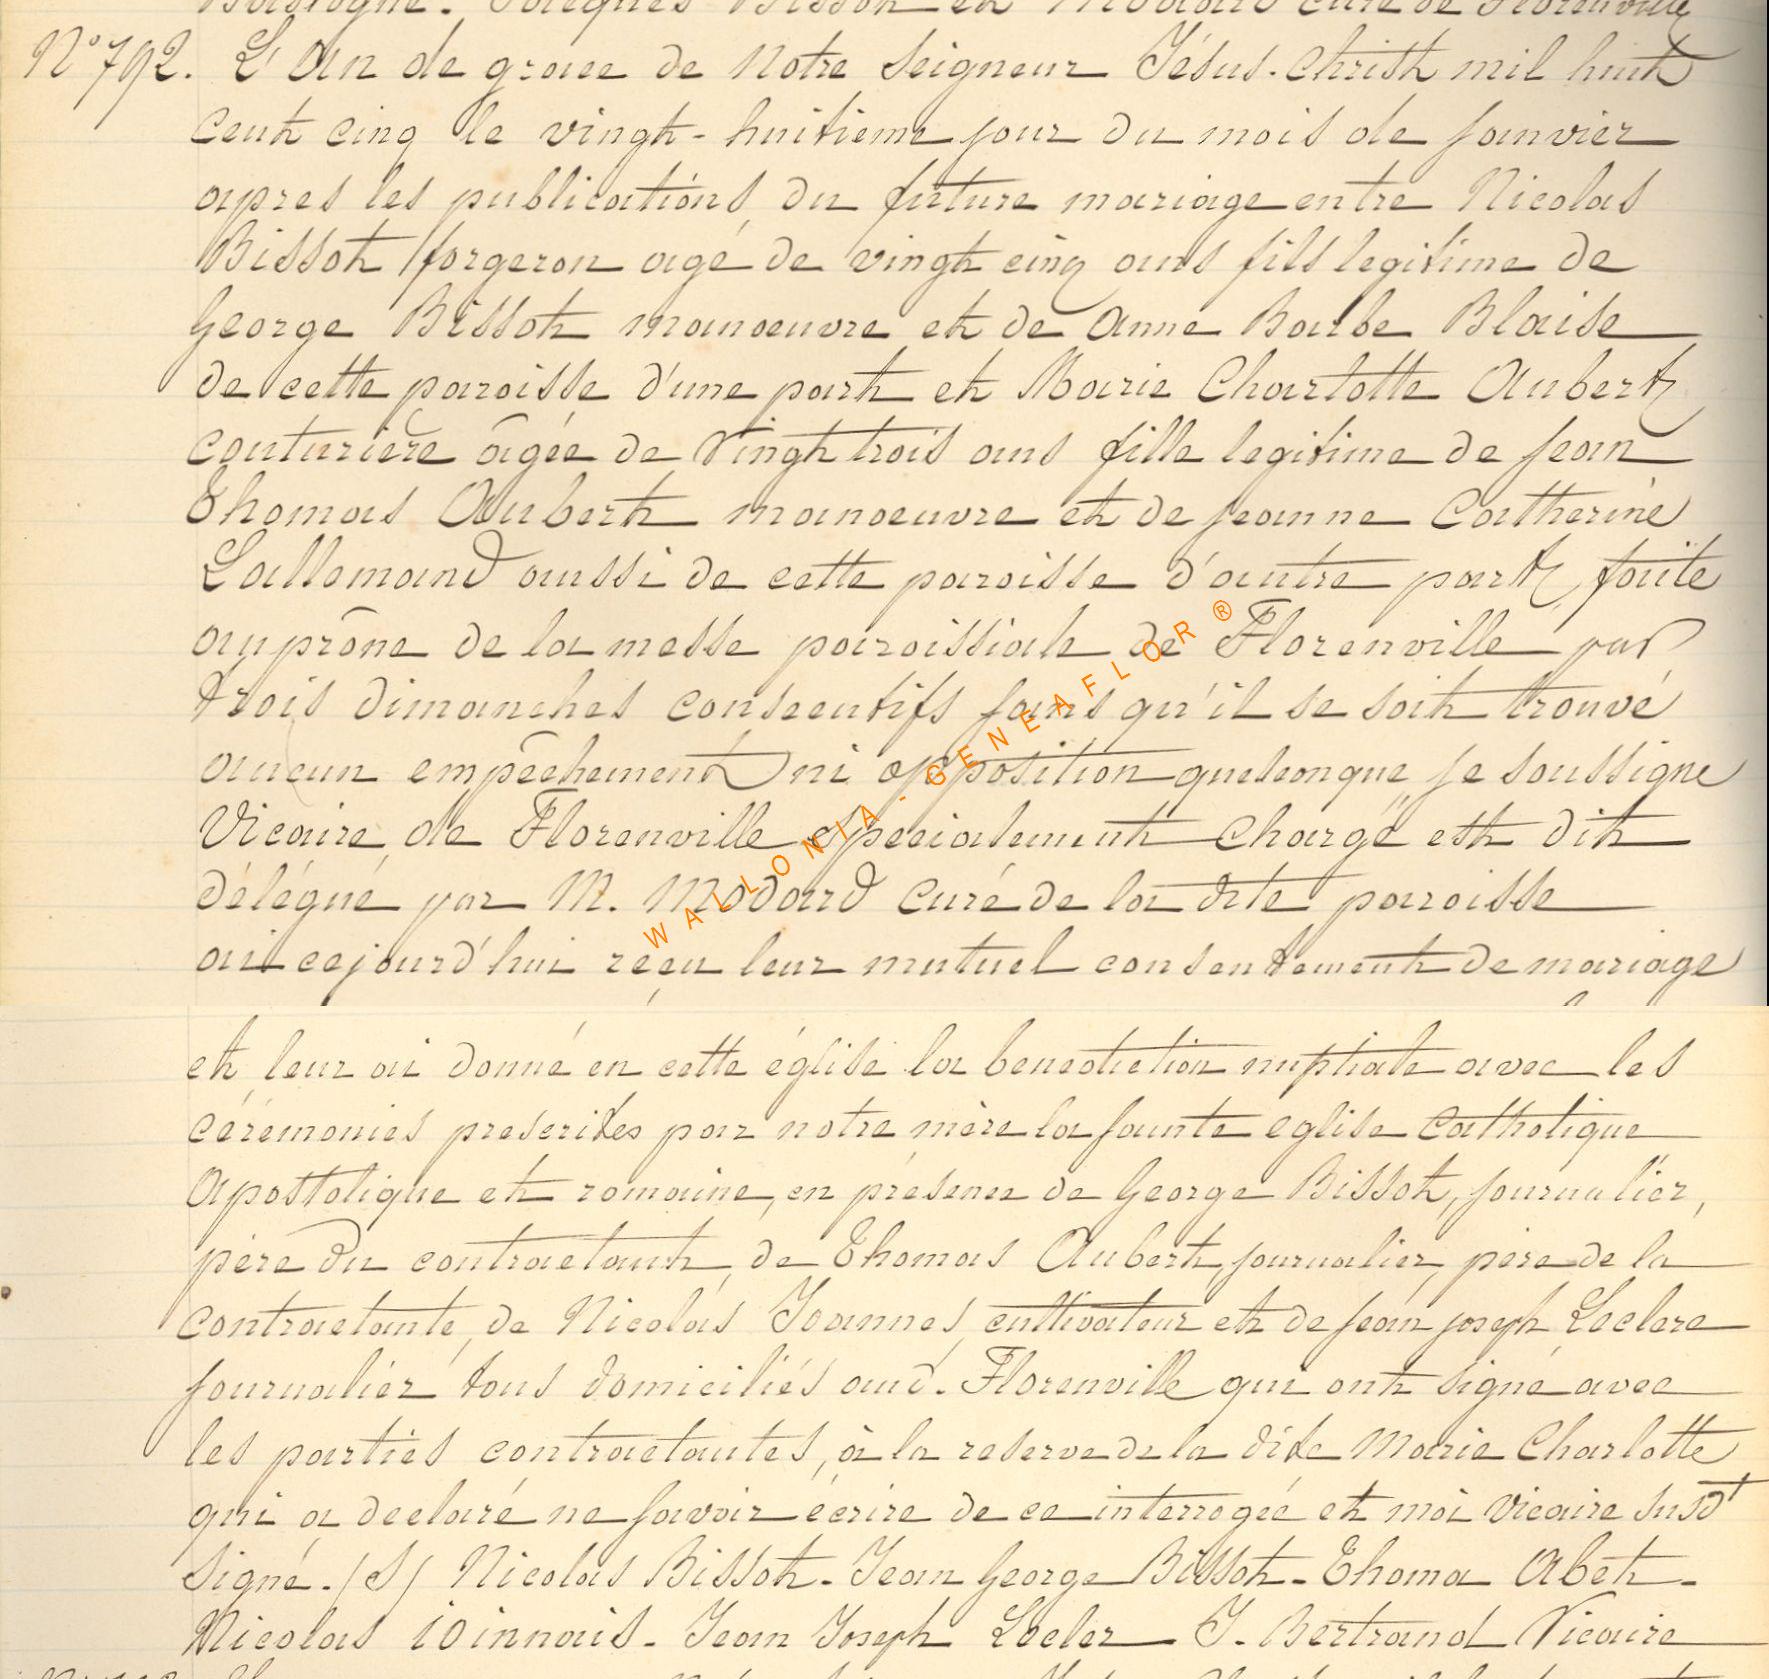 Bastogne. Jacques Bissot et Modard curé de Florenville
N° 792. L'An de grace de Notre Seigneur Jésus-Christ mil huit
cent cinq le vingt-huitieme jour du mois de janvier
apres les publications du future mariage entre Nicolas
Bissot forgeron agé de vingt cinq ans fils legitime de
George Bissot manoeuvre et de Anne Barbe Blaise
de cette paroisse d'une part et Marie Charlotte Aubert
couturière âgée de Vingt trois ans fille legitime de Jean
Thomas Aubert manoeuvre et de Jeanne Catherine
Lallemand aussi de cette paroisse d'autre part, faite
au prône de la messe paroissiale de Florenville par
trois dimanches consecutifs sans qu'il se soit trouvé
aucun empêchement ni opposition quelconque je soussigne
Vicaire de Florenville specialement chargé est dit
délégué par M. Modard curé de la dite paroisse
ai cejourd'hui réçu leur mutuel consentement de mariage
et leur ai donné en cette église la benediction nuptiale avec les
cérémonies prescrites par notre mère la sainte eglise Catholique
Apostolique et romaine, en présence de George Bissot, journalier,
père du contractant, de Thomas Aubert, journalier, père de la
contractante, de Nicolas Joannes, cultivateur et de Jean joseph Leclere
journalier tous domiciliés aud. Florenville qui ont signé avec
les parties contractantes, à la reserve de la dite Marie Charlotte
qui a declaré ne savoir écrire de ce interrogée et moi Vicaire susdt
signé. /S/ Nicolas Bissot - Jean George Bissot - Thoma Abet -
Nicolas ioinnais - Jean Joseph Lecler - J. Bertrand Vicaire
WALLONIA - GENEAFLOR ®